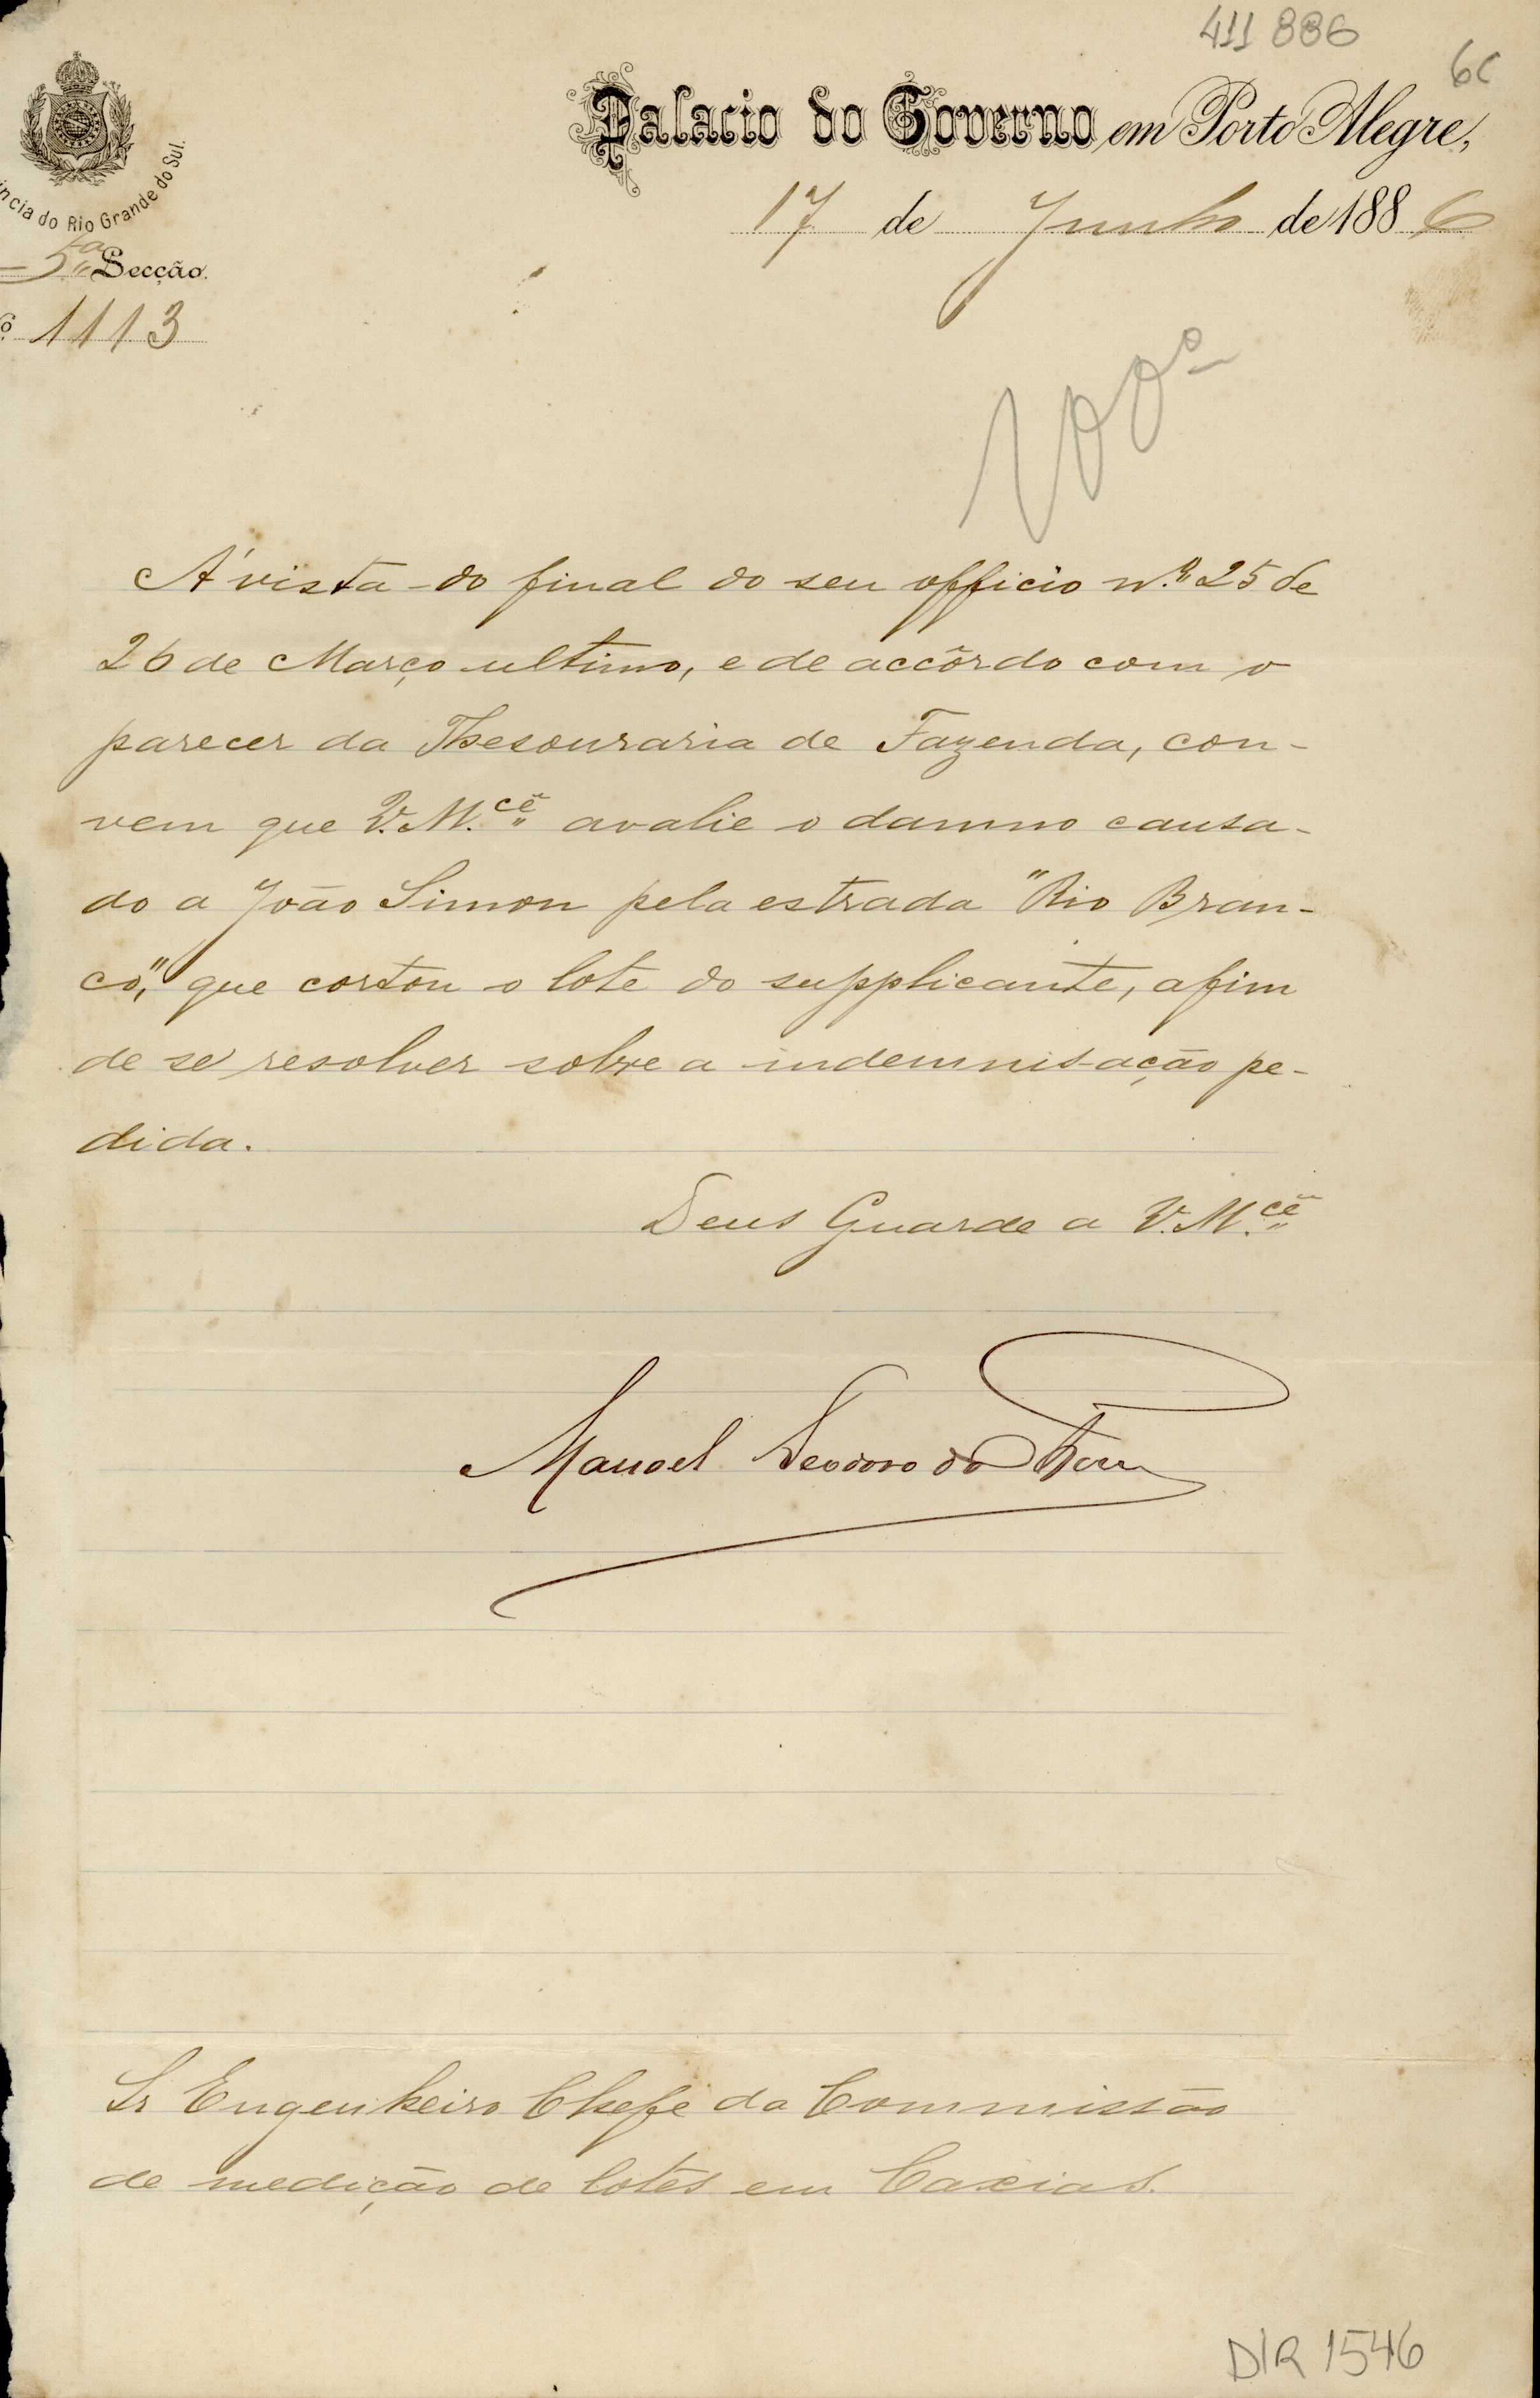 411 886
6c
Palacio do Governo em Porto Alegre,
17 de Junho de 1886
incia do Rio Grande do Sul.
5ª Secção.
º 1113
100º
A' vista do final do seu officio n.º 25 de
26 de Março ultimo, e de accôrdo com o
parecer da Thesouraria de Fazenda, con-
vem que V. M.cê avalie o damno causa-
do a João Simon pela estrada "Rio Bran-
co", que cortou o lote do supplicante, afim
de se resolver sobre a indemnisação pe-
dida.
Deus Guarde a V. M.cê
Manoel Deodoro da Fon
Sr Engenheiro Chefe da Commissão
de medição de lotes em Caxias.
DIR 1546